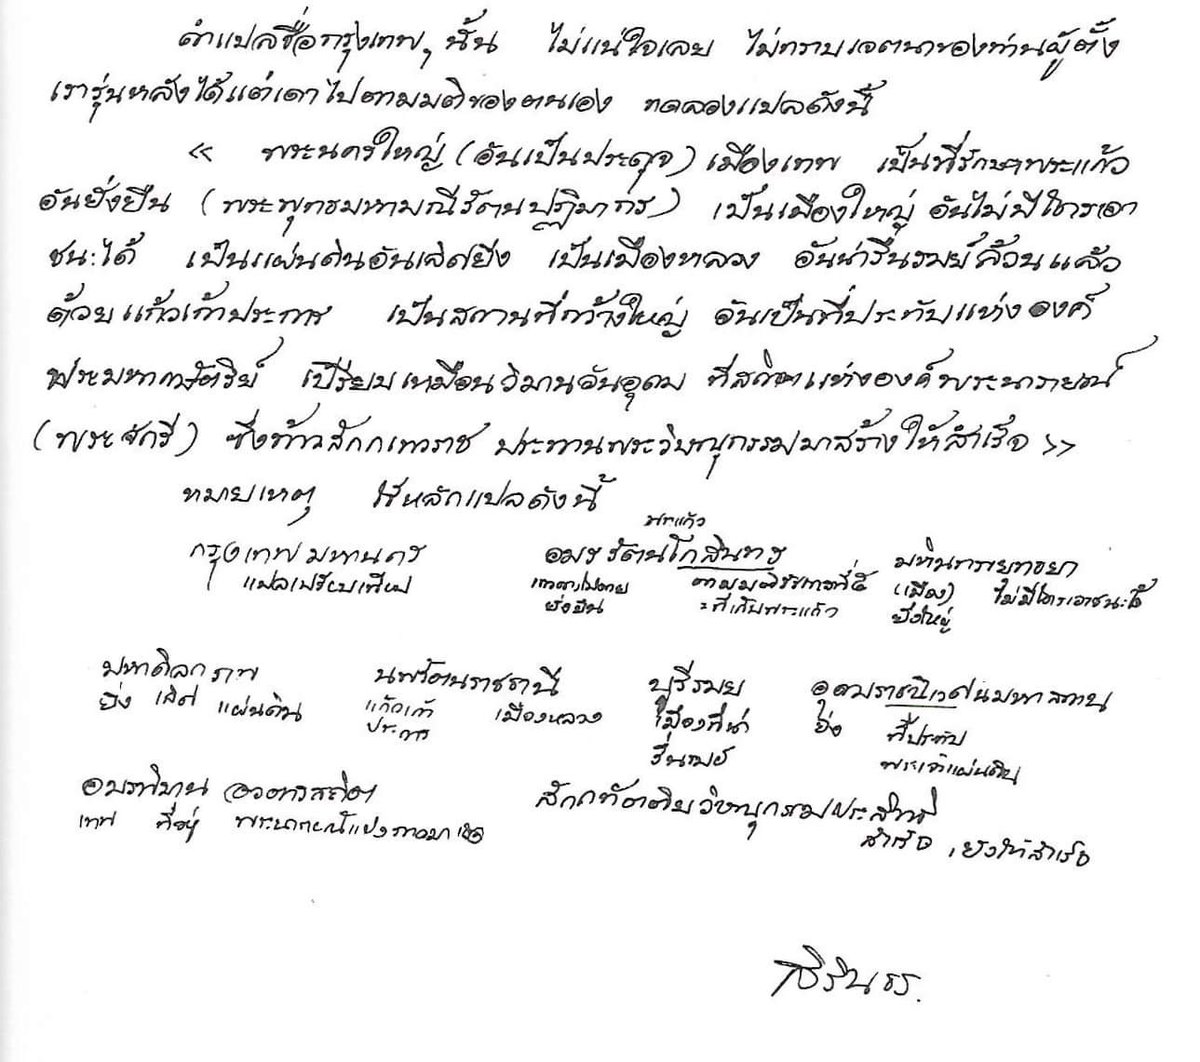 คำแปลชื่อกรุงเทพฯ นั้น ไม่แน่ใจเลย ไม่ทราบเจตนาของท่านผู้ตั้ง
เรารุ่นหลังได้แต่เดาไปตามมติของตนเอง ทดลองแปลดังนี้
« พระนครใหญ่ (อันเป็นประดุจ) เมืองเทพ เป็นที่รักษาพระแก้ว
อันยั่งยืน (พระพุทธมหามณีรัตนปฏิมากร) เป็นเมืองใหญ่ อันไม่มีใครเอา
ชนะได้ เป็นแผ่นดินอันเลิศยิ่ง เป็นเมืองหลวง อันน่ารื่นรมย์ล้วนแล้ว
ด้วยแก้วเก้าประการ เป็นสถานที่กว้างใหญ่ อันเป็นที่ประทับแห่งองค์
พระมหากษัตริย์ เปรียบเหมือนวิมานอันอุดม ที่สถิตแห่งองค์พระนารายณ์
(พระจักรี) ซึ่งท้าวสักกเทวราช ประทานพระวิษณุกรรมมาสร้างให้สำเร็จ »
หมายเหตุ ใช้หลักแปลดังนี้
พระแก้ว
กรุงเทพมหานคร อมรรัตนโกสินทร มหินทรายุทธยา
แปลเปรียบเทียบ เทวดาไม่ตาย ตามมติรัชกาลที่ ๕ (เมือง) ไม่มีใครเอาชนะได้
ยั่งยืน ที่เก็บพระแก้ว ยิ่งใหญ่
มหาดิลกภพ นพรัตนราชธานี บุรีรมย์ อุดมราชนิเวศนมหาสถาน
ยิ่ง เลิศ แผ่นดิน แก้วเก้า เมืองหลวง เมืองที่น่า ยิ่ง ที่ประทับ
ประการ รื่นรมย์ พระเจ้าแผ่นดิน
อมรพิมาน อวตารสถิต สักกทัตติยวิษณุกรรมประสิทธิ์
เทพ ที่อยู่ พระนารายณ์แบ่งภาคมาเกิด สำเร็จ , ยังให้สำเร็จ
สิรินธร.